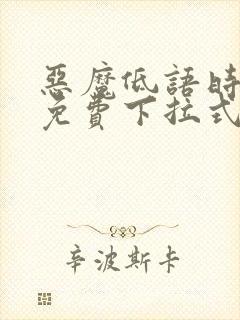 惡魔低語時
免費下拉式
辛波斯卡